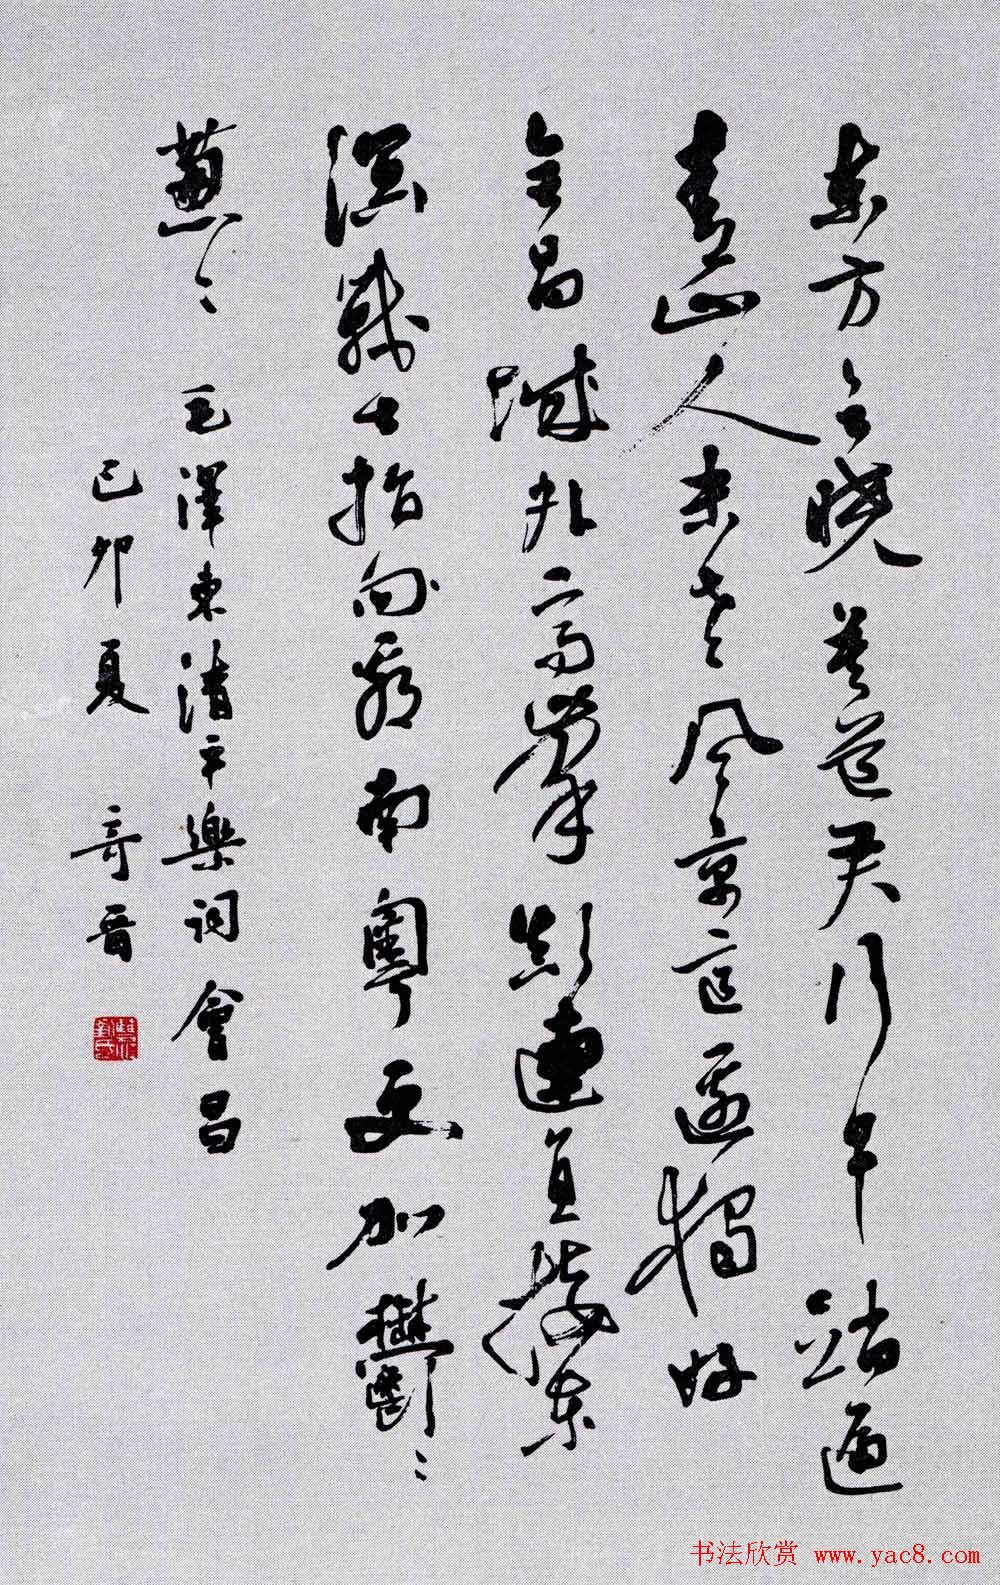 東方欲曉莫道君行早踏遍
青山人未老風景這邊獨好
會昌城外高峰顛連直接東
溟戰士指向看南粵更加鬱々
蔥々 毛澤東清平樂詞會昌
己卯夏 奇晋
书法欣赏 www.yac8.com